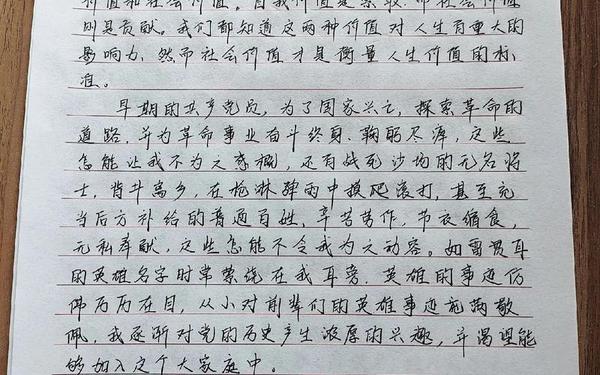 价值和社会价值。自我价值是索取，而社会价值
则是贡献。我们都知道这两种价值对人生有重大的
影响力，然而社会价值才是衡量人生价值的标
准。
早期的共产党员，为了国家兴亡，探索革命的
道路，并为革命事业奋斗终身，鞠躬尽瘁，这些
怎能让我不为之感慨，还有战死沙场的无名将
士，背井离乡，在枪淋弹雨中摸爬滚打，甚至充
当后方补给的普通百姓，辛苦劳作，节衣缩食，
无私奉献，这些怎能不令我为之动容。如雷贯耳
的英雄名字时常萦绕在我耳旁，英雄的事迹仿
佛历历在目，从小对前辈们的英雄事迹充满敬
佩，我逐渐对党的历史产生浓厚的兴趣，并渴望能
够加入这个大家庭中。